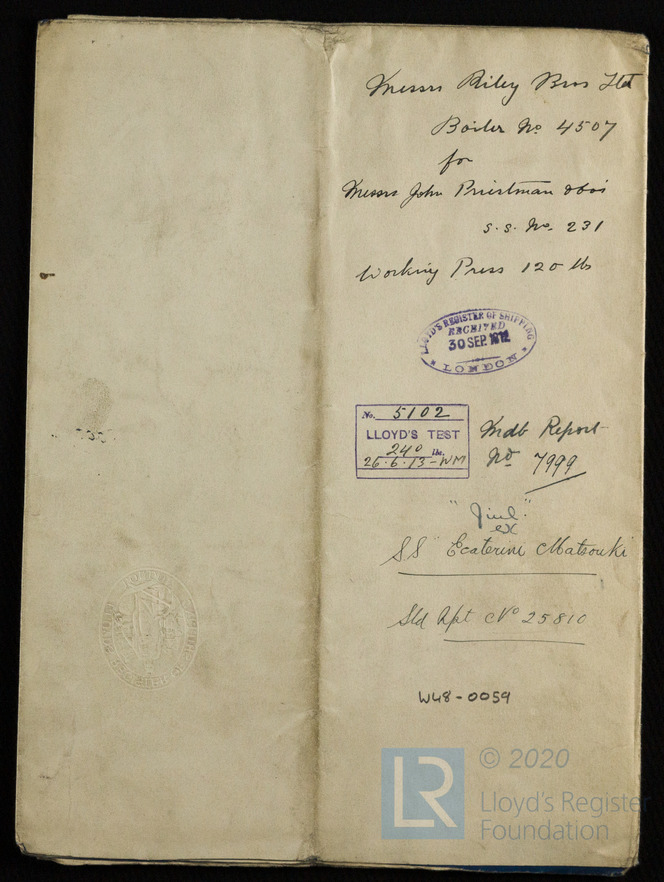 Messrs Riley Bros Ltd
Boiler No 4507
for
Messrs John Priestman & Cos
s.s. No. 231
Working Press 120 lbs
LLOYD'S REGISTER OF SHIPPING
RECEIVED
30 SEP. 1912
LONDON
No. 5102
LLOYD'S TEST
240 lbs.
26.6.13-WM
Mdb Report
No 7999
ex
SS "Ecaterini Matsouki
Sld Rpt No 25810
W48-0059
LR
© 2020
Lloyd's Register
Foundation